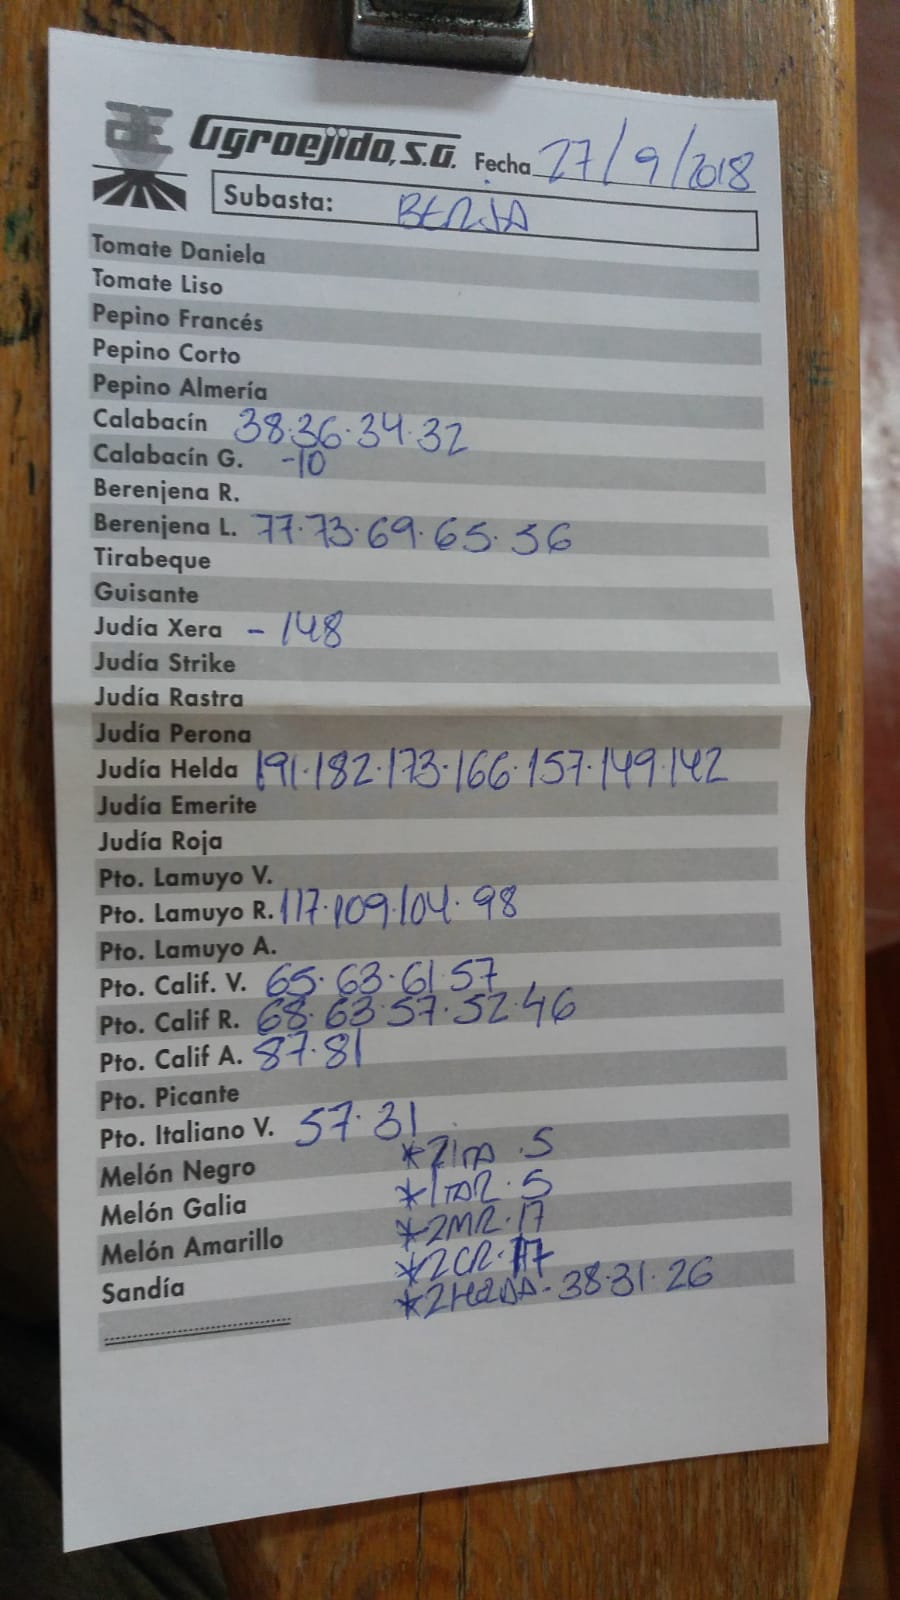 AE Agroejido, S.A. Fecha 27/9/2018
Subasta: BERJA
Tomate Daniela
Tomate Liso
Pepino Francés
Pepino Corto
Pepino Almería
Calabacín 38·36·34·32
Calabacín G. -10
Berenjena R.
Berenjena L. 77·73·69·65·56
Tirabeque
Guisante
Judía Xera - 148
Judía Strike
Judía Rastra
Judía Perona
Judía Helda 191·182·173·166·157·149·142
Judía Emerite
Judía Roja
Pto. Lamuyo V.
Pto. Lamuyo R. 117·109·104·98
Pto. Lamuyo A.
Pto. Calif. V. 65·63·61·57
Pto. Calif R. 68·63·57·52·46
Pto. Calif A. 87·81
Pto. Picante
Pto. Italiano V. 57·31
Melón Negro *2ITA·5
Melón Galia *1TAR·5
Melón Amarillo *2MR·17
Sandía *2CR·17
*2HLDA-38·31·26